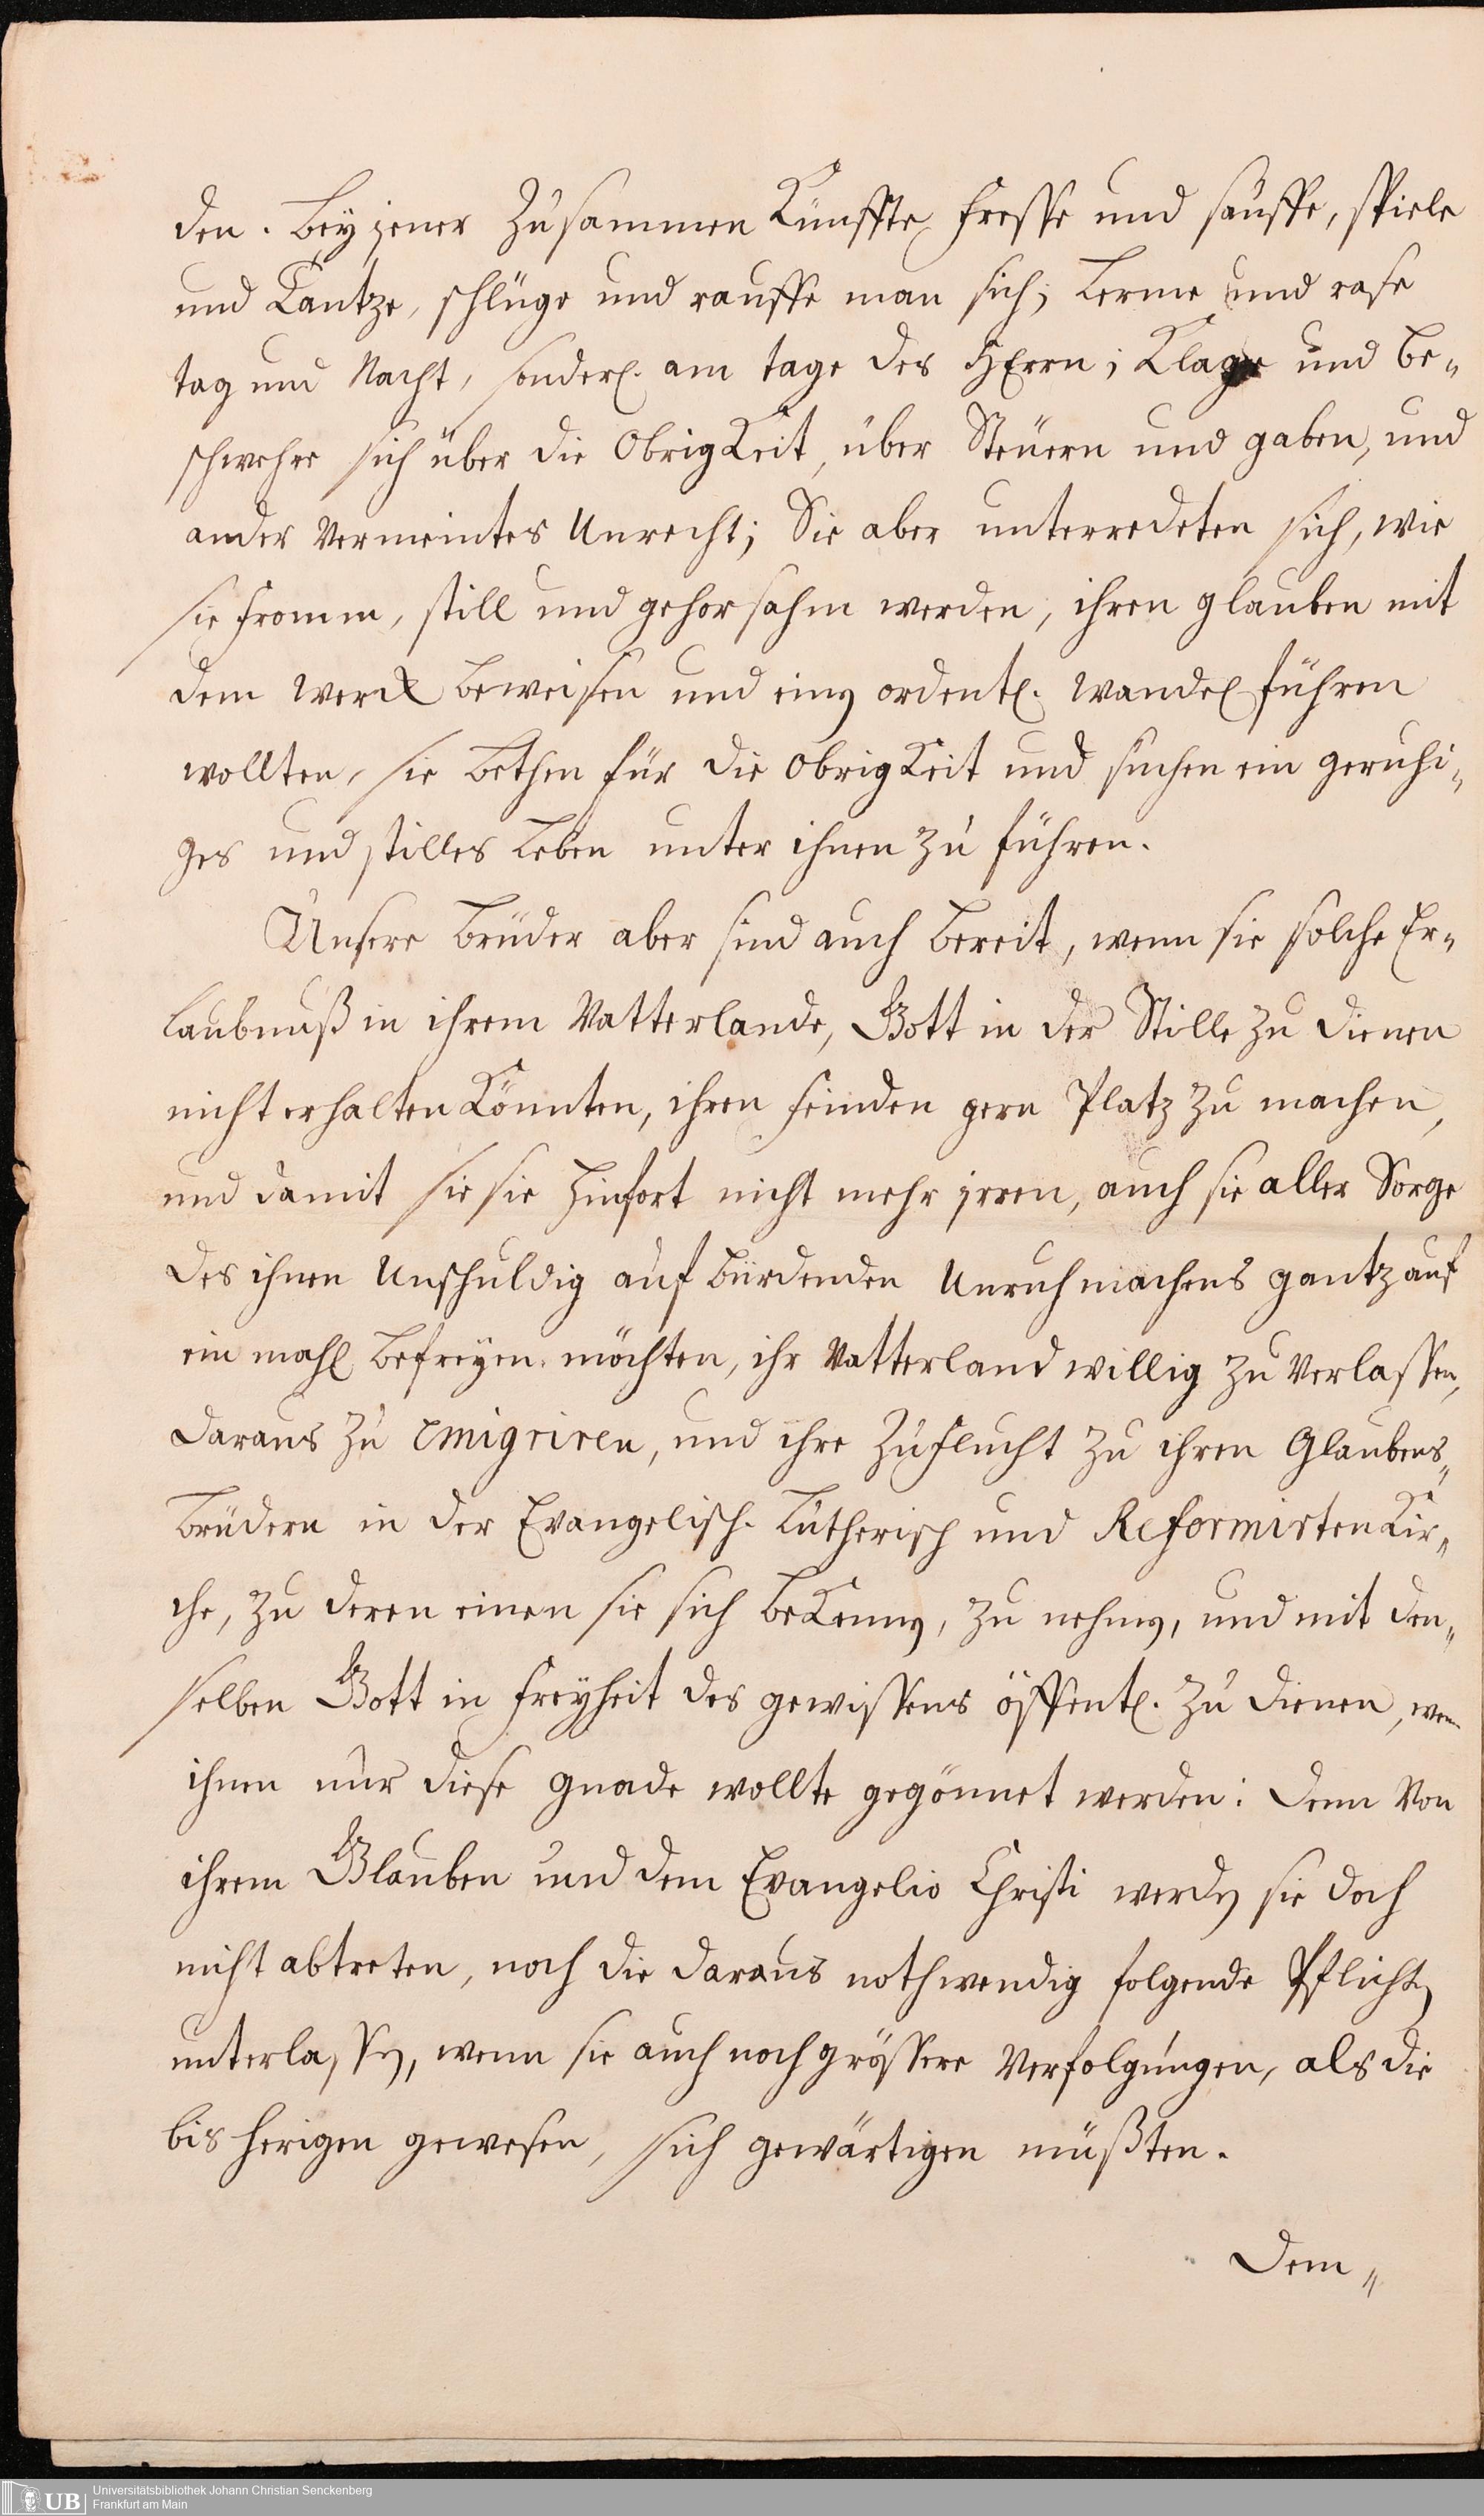 den. Bey jener Zusammen Künffte fresse und sauffe, spiele
und Tantze, schlüge und rauffe man sich; Lerme und rase
tag und Nacht, sonderl. am tage des HErrn; Klage und be-
schwehre sich über die ObrigKeit, über Steuern und gaben, und
ander vermeintes Unrecht; Sie aber unterredeten sich, wie
sie fromm, still und gehorsahm werden, ihren glauben mit
dem werck beweisen und einen ordentl. wandel führen
wollten, sie bethen für die ObrigKeit und suchen ein geruhi-
ges und stilles Leben unter ihnen zu führen.
Unsere Brüder aber sind auch bereit, wenn sie solche Er-
laubnuß in ihrem Vatterlande, Gott in der Stille zu dienen
nicht erhalten Könnten, ihren feinden gern Platz zu machen,
und damit sie sie hinfort nicht mehr jrren, auch sie aller Sorge
des ihnen Unschuldig aufbürdenden Unruhmachens gantz auf
ein mahl befreyen möchten, ihr Vatterland willig zu verlassen,
daraus zu emigriren, und ihre Zuflucht zu ihren Glaubens-
Brüdern in der Evangelisch. Lutherisch und Reformirten Kir-
che, zu deren einen sie sich beKennen, zu nehmen, und mit den-
selben Gott in freyheit des gewissens öffentl. zu dienen, wenn
ihnen nur diese gnade wollte gegönnet werden: denn von
ihrem Glauben und dem Evangelio Christi werden sie doch
nicht abtreten, noch die daraus nothwendig folgende Pflichten
unterlassen, wenn sie auch noch grössere Verfolgungen, als die
bis herigen gewesen, sich gewärtigen müßten.
Dem-
UB Universitätsbibliothek Johann Christian Senckenberg
Frankfurt am Main